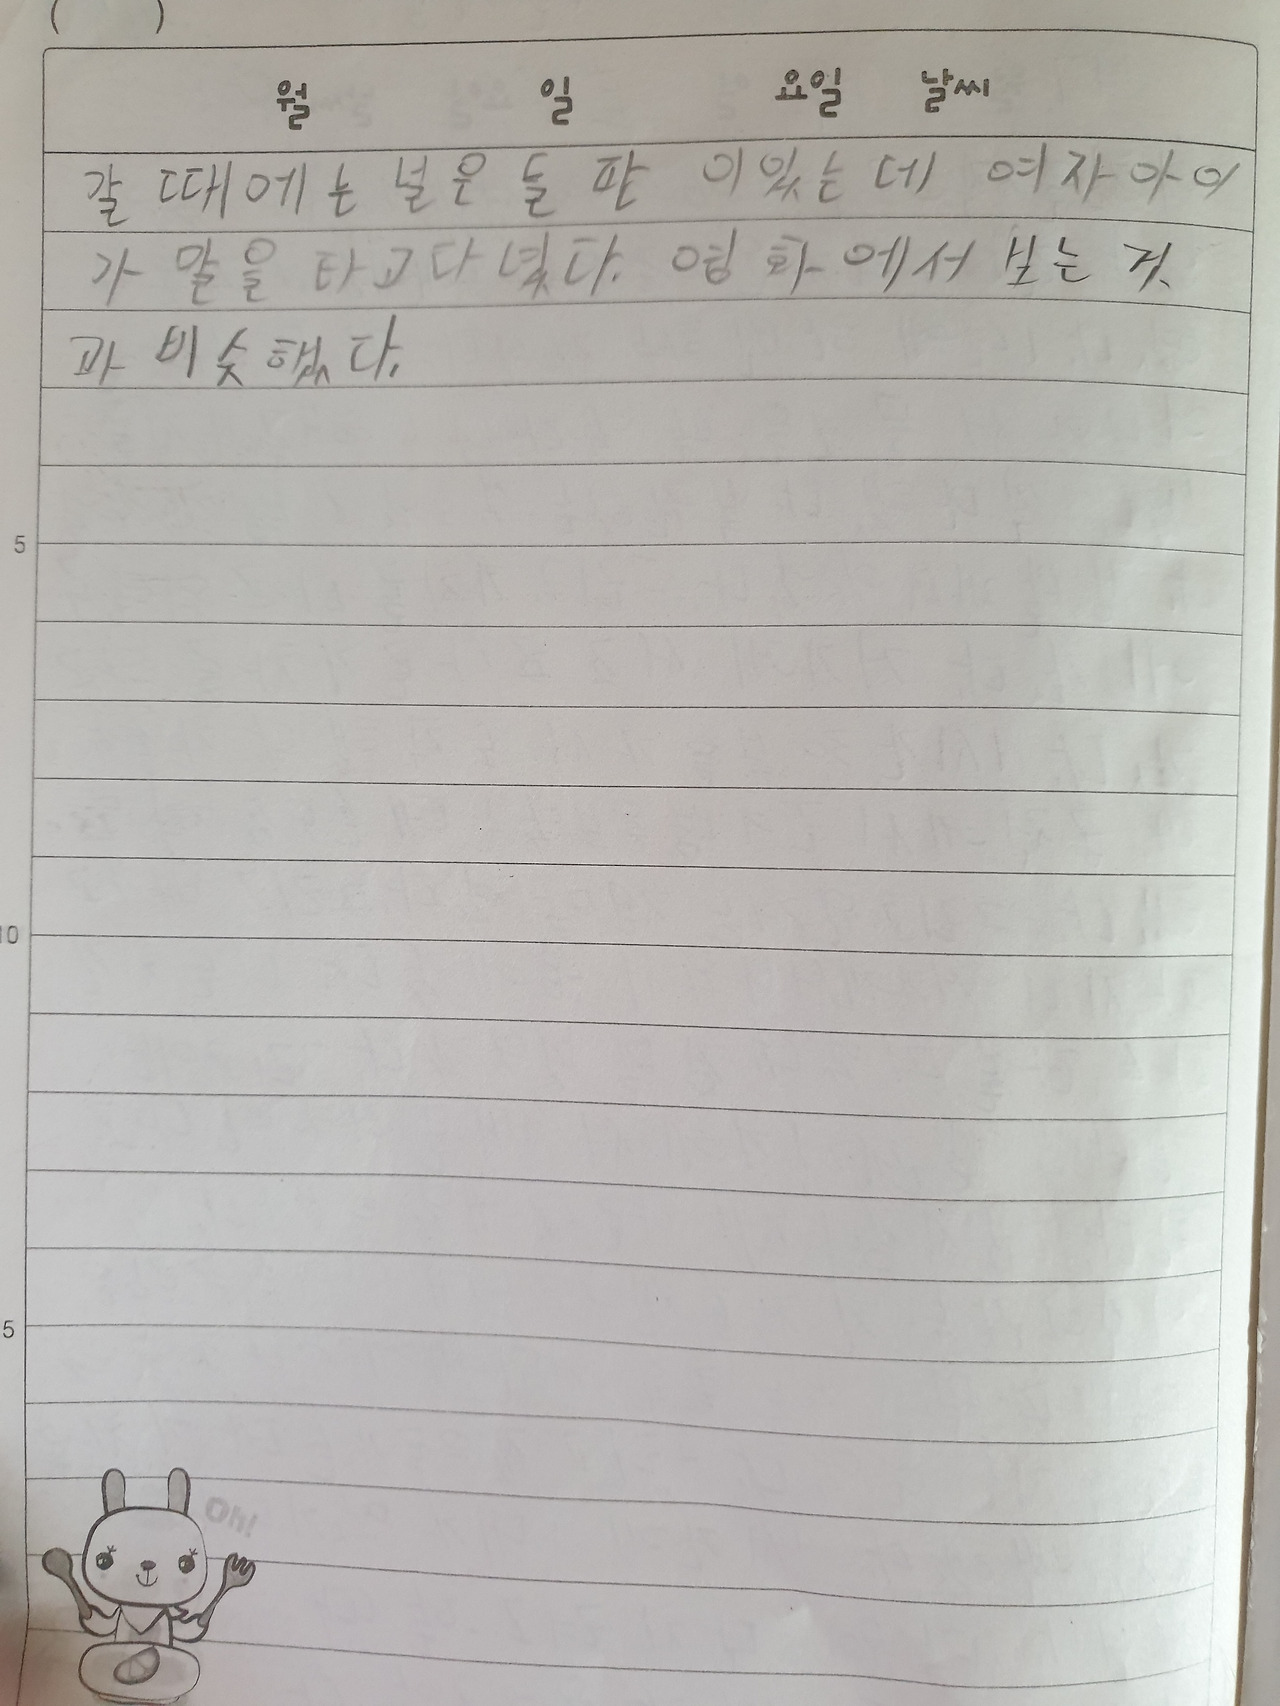 ( )
월 일 요일 날씨
갈 때에는 넓은 들 판 이있는데 여자아이
가 말을 타고다녔다. 영화에서 보는 것
과 비슷했다.
5
10
5
Oh!